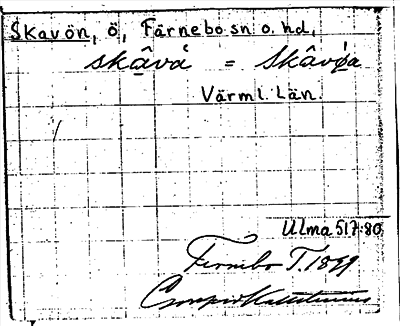 Skavön, ö, Färnebo sn o. hd,
skâvá = Skâvǿa
Värml. Län.
Ulma 517:80
Fernebo T. 1899